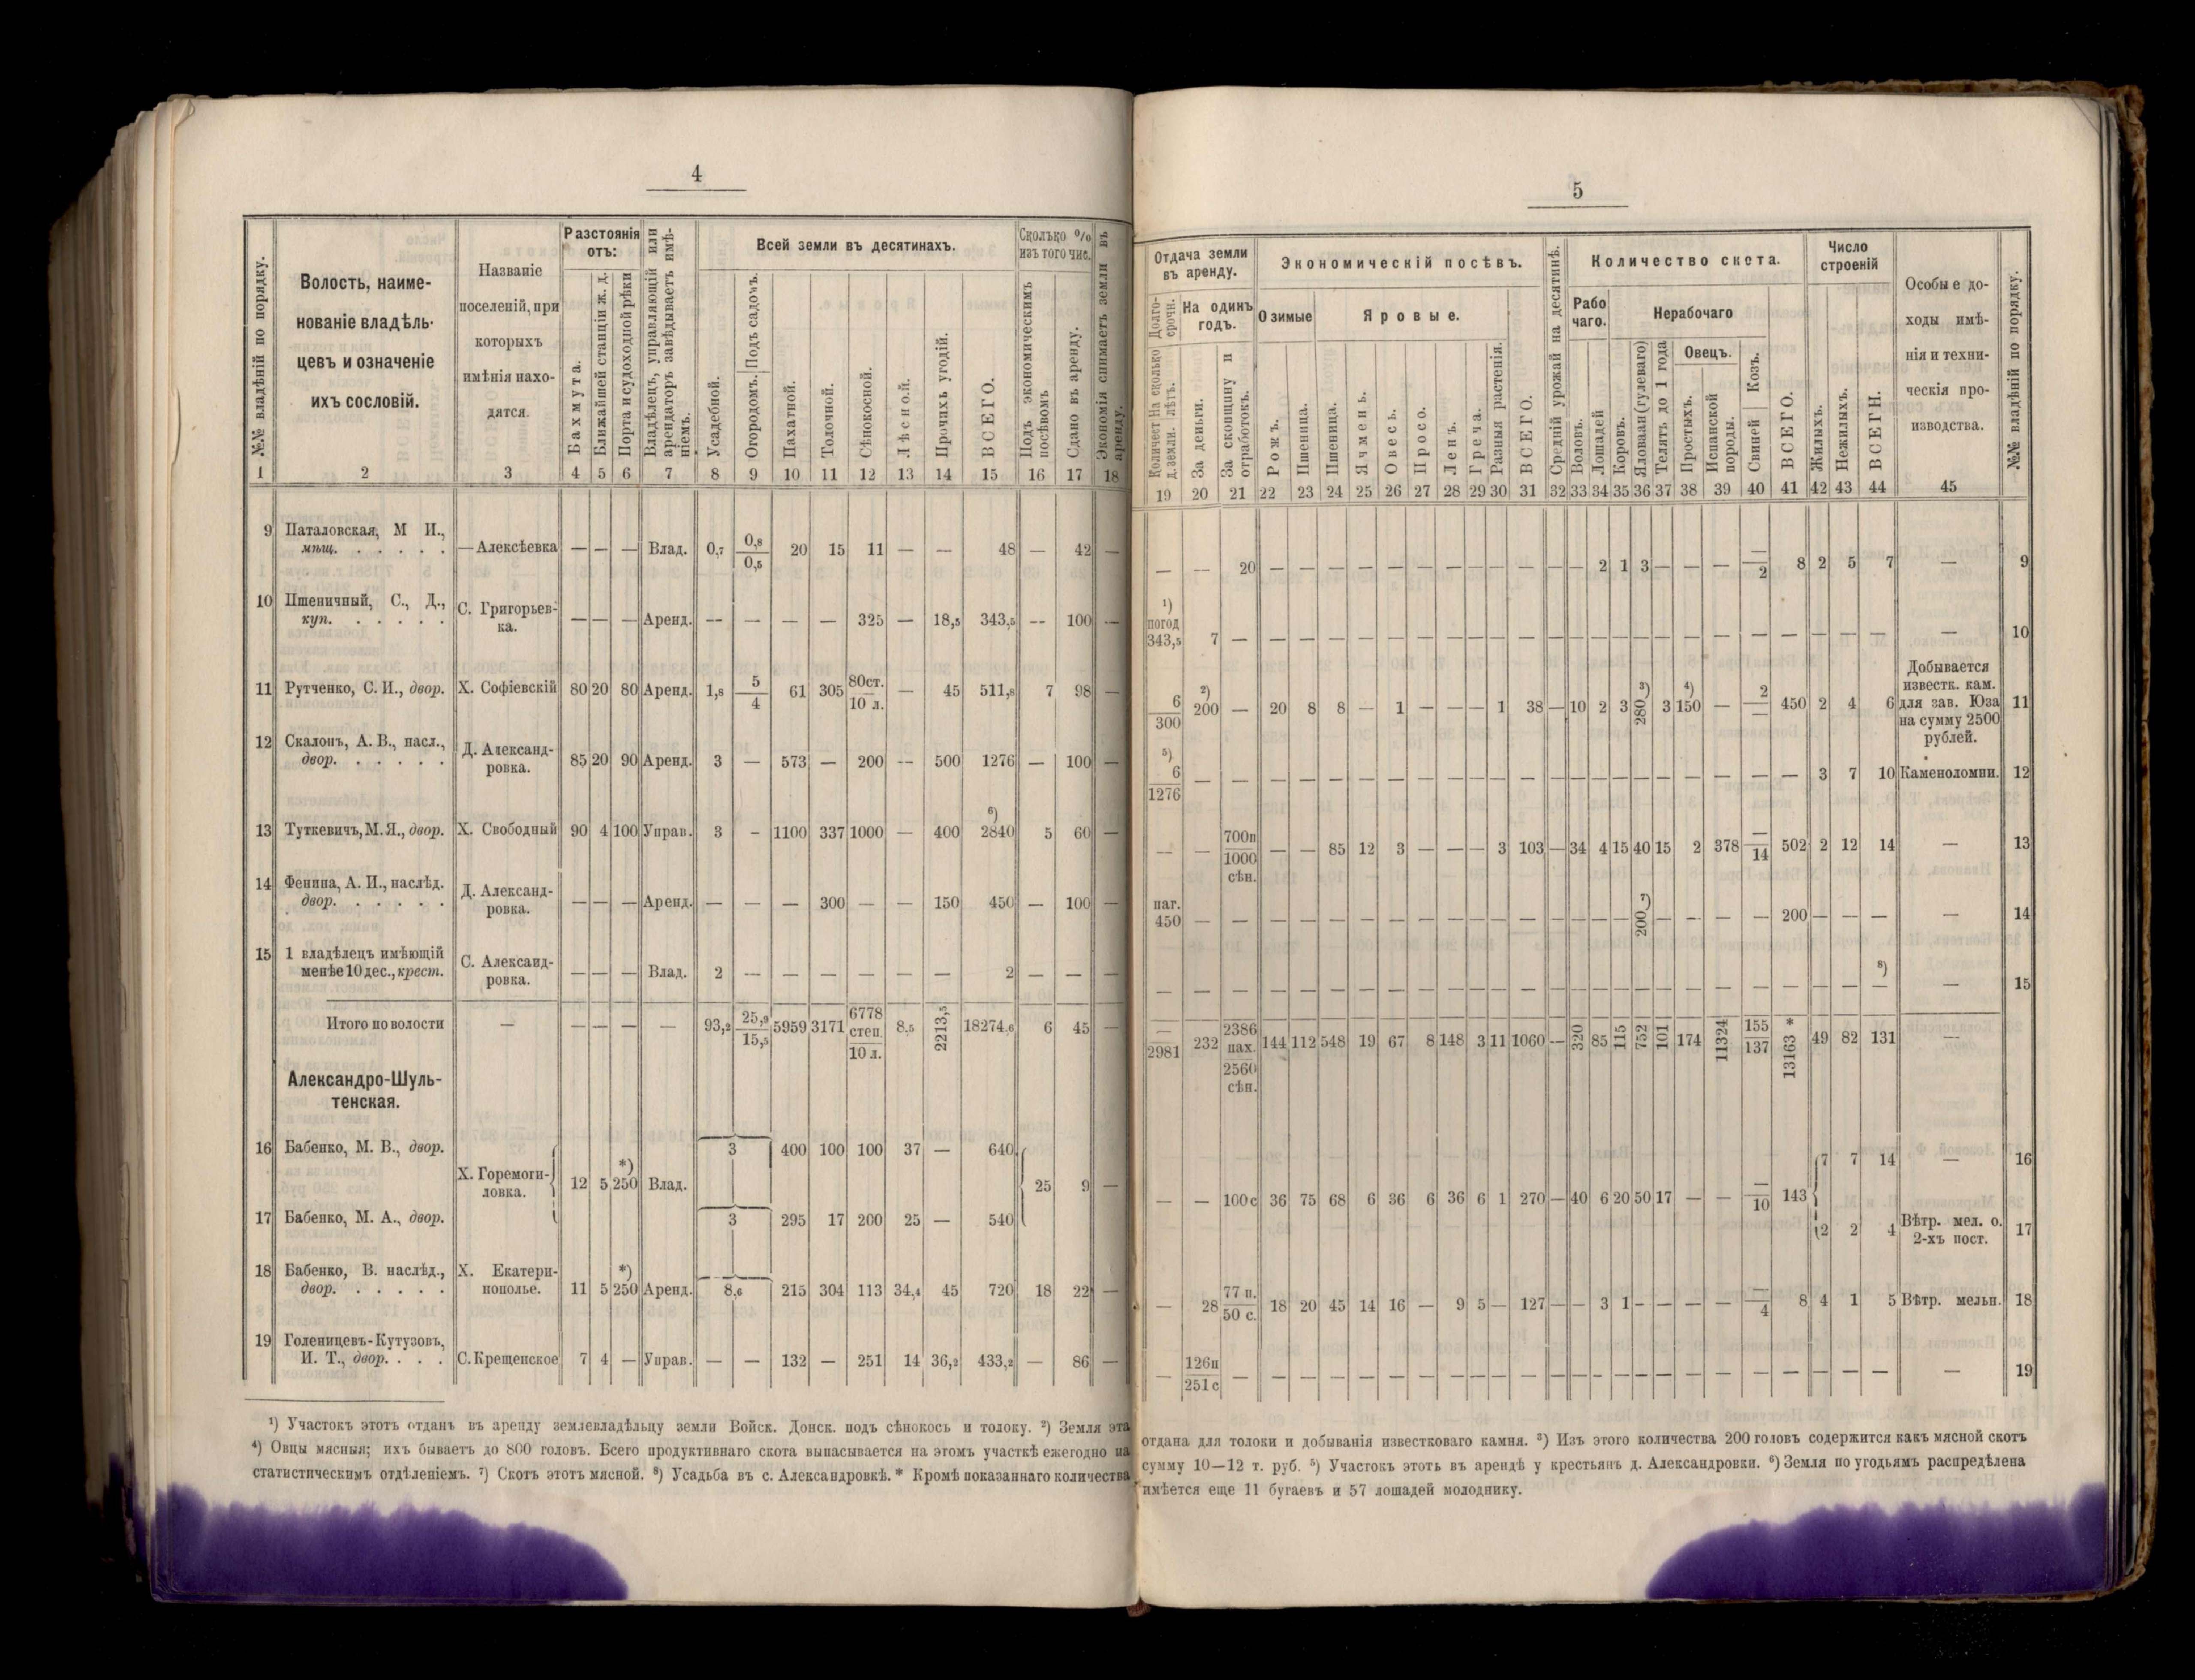 4
№№ владѣній по порядку.
Волость, наиме-
нованіе владѣль-
цевъ и означеніе
ихъ сословій.
Названіе
поселеній, при
которыхъ
имѣнія нахо-
дятся.
Разстоянія
отъ:
Бахмута.
Ближайшей станціи ж. д.
Порта и судоходной рѣки
Владѣлецъ, управляющій или
арендаторъ завѣдываетъ имѣ-
ніемъ.
Всей земли въ десятинахъ.
Усадебной.
Огородомъ. Подъ садомъ.
Пахатной.
Толочной.
Сѣнокосной.
Лѣсной.
Прочихъ угодій.
ВСЕГО.
Сколько %
изъ того чис.
Подъ экономическимъ
посѣвомъ
Сдано въ аренду.
Экономія снимаетъ земли въ
аренду.
1 2 3 4 5 6 7 8 9 10 11 12 13 14 15 16 17 18
9 Паталовская, М И.,
мѣщ. . . . . . — Алексѣевка — — — Влад. 0,7 0,8/0,5 20 15 11 — — 48 — 42 —
10 Пшеничный, С., Д.,
куп. . . . . . С. Григорьев-
ка. — — — Аренд. -- — — — 325 — 18,5 343,5 -- 100 —
11 Рутченко, С. И., двор. Х. Софіевскій 80 20 80 Аренд. 1,8 5/4 61 305 80ст./10 л. — 45 511,8 7 98 —
12 Скалонъ, А. В., насл.,
двор. . . . . . Д. Александ-
ровка. 85 20 90 Аренд. 3 — 573 — 200 -- 500 1276 — 100 —
13 Туткевичъ, М. Я., двор. Х. Свободный 90 4 100 Управ. 3 - 1100 337 1000 — 400 6) 2840 5 60 —
14 Фенина, А. И., наслѣд.
двор. . . . . . Д. Александ-
ровка. — — — Аренд. — — — 300 — — 150 450 — 100 —
15 1 владѣлецъ имѣющій
менѣе 10 дес., крест. С. Александ-
ровка. — — — Влад. 2 — — — — — — 2 — — —
Итого по волости — — — — — 93,2 25,9/15,5 5959 3171 6778 степ./10 л. 8,5 2213,5 18274,6 6 45 —
Александро-Шуль-
тенская.
16 Бабенко, М. В., двор. 3 400 100 100 37 — 640
Х. Горемоги-
ловка. 12 5 *) 250 Влад. 25 9 —
17 Бабенко, М. А., двор. 3 295 17 200 25 — 540
18 Бабенко, В. наслѣд.,
двор. . . . . . Х. Екатери-
нополье. 11 5 *) 250 Аренд. 8,6 215 304 113 34,4 45 720 18 22 —
19 Голеницевъ-Кутузовъ,
И. Т., двор. . . . С. Крещенское 7 4 — Управ. — — 132 — 251 14 36,2 433,2 — 86 —
¹) Участокъ этотъ отданъ въ аренду землевладѣльцу земли Войск. Донск. подъ сѣнокосъ и толоку. ²) Земля эта
⁴) Овцы мясныя; ихъ бываетъ до 800 головъ. Всего продуктивнаго скота выпасывается на этомъ участкѣ ежегодно на
статистическимъ отдѣленіемъ. ⁷) Скотъ этотъ мясной. ⁸) Усадьба въ с. Александровкѣ. * Кромѣ показаннаго количества
5
Отдача земли
въ аренду.
Долго-
срочн.
Количест На сколько
д. земли. лѣтъ.
На одинъ
годъ.
За деньги.
За скопщину и
отработокъ.
Экономическій посѣвъ.
Озимые
Рожь.
Пшеница.
Яровые.
Пшеница.
Ячмень.
Овесъ.
Просо.
Ленъ.
Греча.
Разныя растенія.
ВСЕГО.
Средній урожай на десятинѣ.
Количество скота.
Рабо
чаго.
Воловъ.
Лошадей
Нерабочаго
Коровъ.
Яловаан (гулеваго)
Телятъ до 1 года
Овецъ.
Простыхъ.
Испанской
породы.
Свиней Козъ.
ВСЕГО.
Число
строеній
Жилыхъ.
Нежилыхъ.
ВСЕГН.
Особые до-
ходы имѣ-
нія и техни-
ческія про-
изводства.
№№ владѣній по порядку.
19 20 21 22 23 24 25 26 27 28 29 30 31 32 33 34 35 36 37 38 39 40 41 42 43 44 45
— — 20 — — — — — — — — — — — — 2 1 3 — — — —/2 8 2 5 7 — 9
1)
погод
343,5 7 — — — — — — — — — — — — — — — — — — — — — — — — — 10
6/300 2) 200 — 20 8 8 — 1 — — — 1 38 — 10 2 3 280 3) 3 4) 150 — 2/— 450 2 4 6 Добывается
известк. кам.
для зав. Юза
на сумму 2500
рублей. 11
5)
6/1276 — — — — — — — — — — — — — — — — — — — — — — 3 7 10 Каменоломни. 12
— — 700п/1000 сѣн. — — 85 12 3 — — — 3 103 — 34 4 15 40 15 2 378 —/14 502 2 12 14 — 13
наг.
450 — — — — — — — — — — — — — — — — 200 7) — — — — 200 — — — — 14
— — — — — — — — — — — — — — — — — — — — — — — — — 8) — — 15
—/2981 232 2386 пах./2560 сѣн. 144 112 548 19 67 8 148 3 11 1060 — 320 85 115 752 101 174 11324 155/137 13163 * 49 82 131 —
7 7 14 — 16
— — 100с 36 75 68 6 36 6 36 6 1 270 — 40 6 20 50 17 — — —/10 143
2 2 4 Вѣтр. мел. о.
2-хъ пост. 17
— 28 77 п./50 с. 18 20 45 14 16 — 9 5 — 127 — — 3 1 - — — — —/4 8 4 1 5 Вѣтр. мельн. 18
— 126п/251с — — — — — — — — — — — — — — — — — — — — — — — — — 19
отдана для толоки и добыванія известковаго камня. ³) Изъ этого количества 200 головъ содержится какъ мясной скотъ
сумму 10—12 т. руб. ⁵) Участокъ этотъ въ арендѣ у крестьянъ д. Александровки. ⁶) Земля по угодьямъ распредѣлена
имѣется еще 11 бугаевъ и 57 лошадей молоднику.